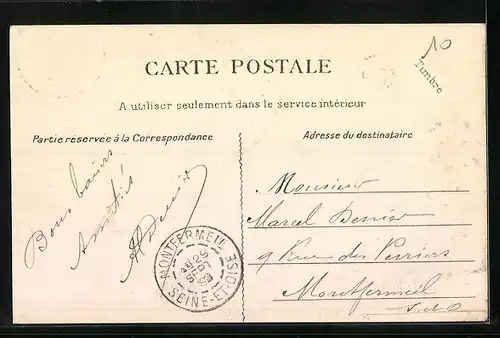 10
Timbre
CARTE POSTALE
A utiliser seulement dans le service intérieur
Partie réservée à la Correspondance
Adresse du destinataire
Bons baisers
Amitiés
Monsieur
Marcel Besnier
9 Rue des Perriers
Montfermeil
S.-et-O
MONTFERMEIL
SEINE-ET-OISE